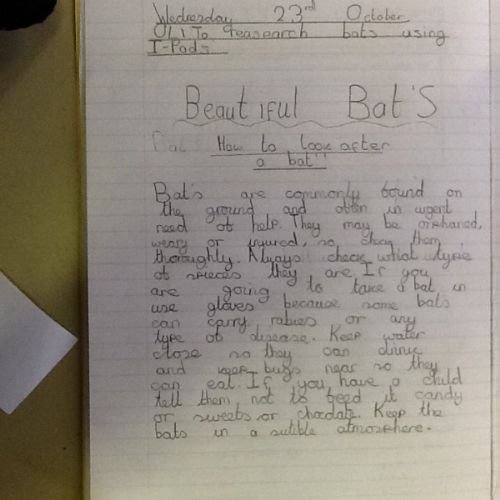 Wednesday 23rd October
O/I To reasearch bats using
I-Pads
Beautiful Bat'S
How to look after
a bat!!
Bat's are commonly found on
the ground and often in urgent
need of help. They may be orphaned,
weary or injured, so check them
thoroughly. Always check what type
of species they are. If you
are going to take a bat in
use gloves because some bats
can carry rabies or any
type of disease. Keep water
close so they can drink
and keep bugs near so they
can eat. If you have a child
tell them not to feed it candy
or sweets or chocolate. Keep the
bats in a sutible atmosphere.